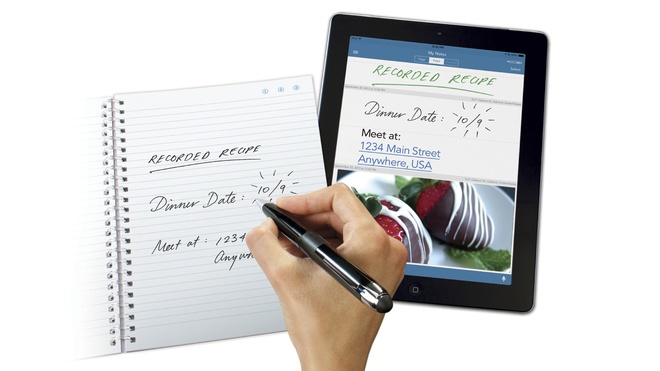 RECORDED RECIPE
Dinner Date: 10/9
Meet at: 1234
Anywh
My Notes
RECORDED RECIPE
Dinner Date: 10/9
Meet at:
1234 Main Street
Anywhere, USA